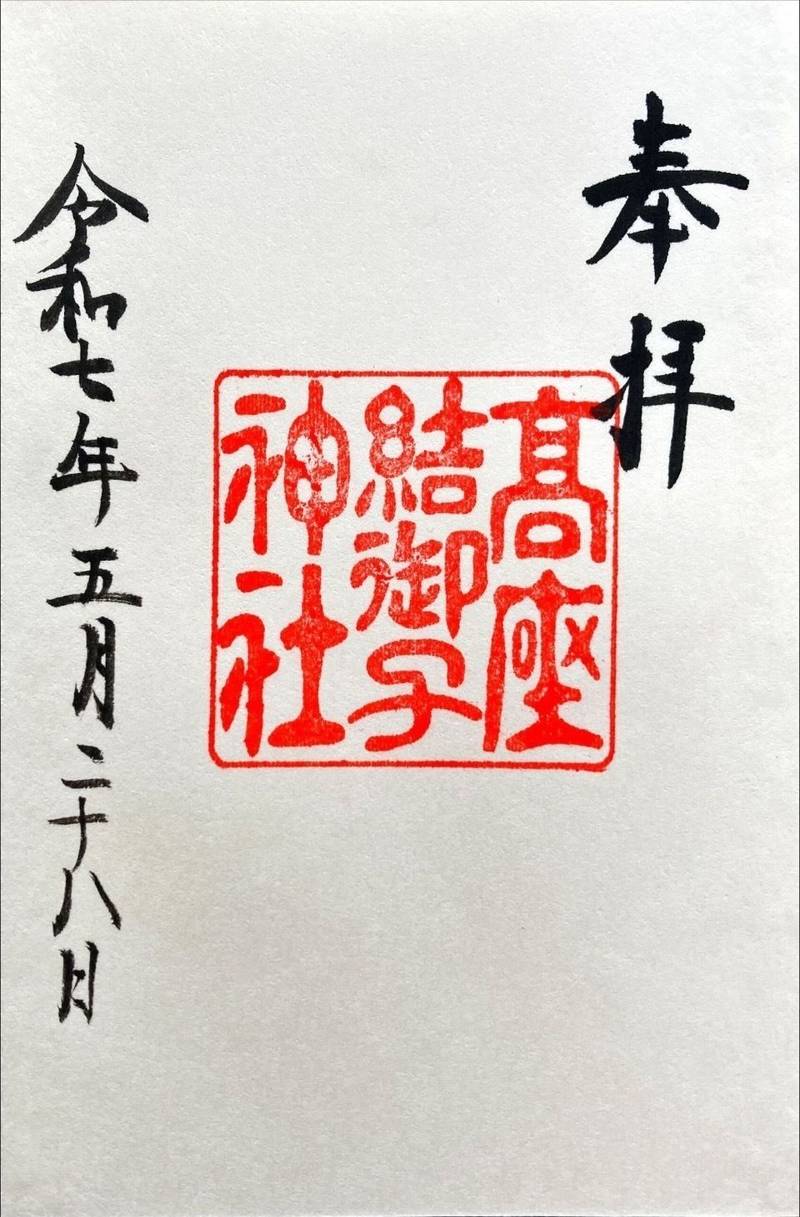 奉拝
髙座
結御子
神社
令和七年五月二十八日